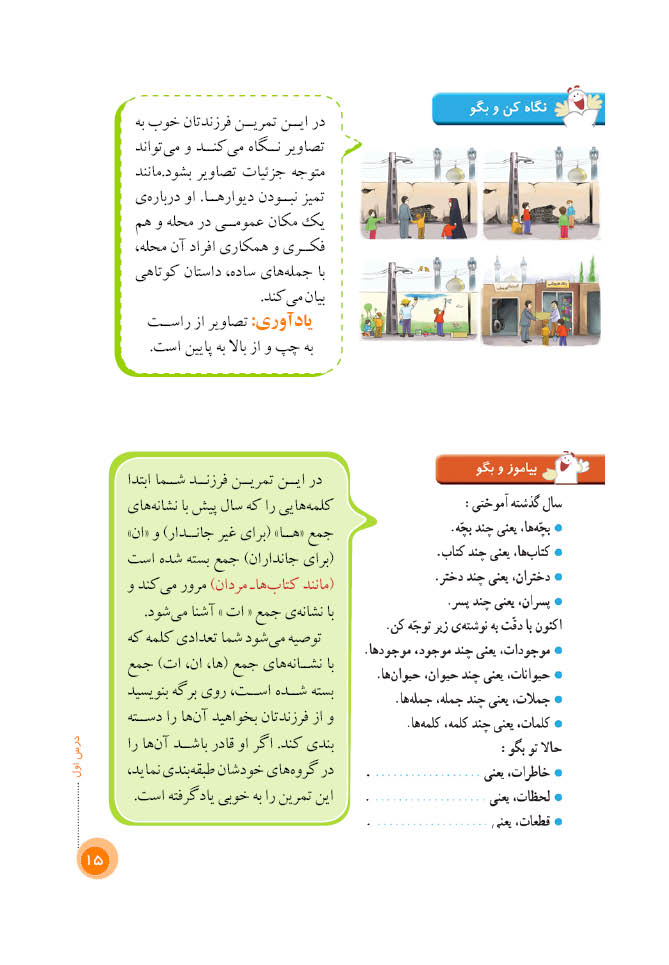 نگاه کن و بگو
در ایـن تمریـن فرزندتان خوب به
تصاویر نـگاه می‌کنـد و می‌تواند
متوجه جزئیات تصاویر بشود.مانند
تمیز نبـودن دیوارهـا. او درباره‌ی
یک مکان عمومـی در محله و هم
فکـری و همکاری افراد آن محله،
با جمله‌های ساده، داستان کوتاهی
بیان می‌کند.
یادآوری: تصاویر از راسـت
به چپ و از بالا به پایین است.
بیاموز و بگو
سال گذشته آموختی :
بچّه‌ها، یعنی چند بچّه.
کتاب‌ها، یعنی چند کتاب.
دختران، یعنی چند دختر.
پسران، یعنی چند پسر.
اکنون با دقّت به نوشته‌ی زیر توجّه کن.
موجودات، یعنی چند موجود، موجودها.
حیوانات، یعنی چند حیوان، حیوان‌ها.
جملات، یعنی چند جمله، جمله‌ها.
کلمات، یعنی چند کلمه، کلمه‌ها.
حالا تو بگو :
خاطرات، یعنی ..................
لحظات، یعنی ..................
قطعات، یعنی ..................
در ایـن تمریـن فرزنـد شـما ابتدا
کلمه‌هایی را که سال پیش با نشانه‌های
جمع «هـا» (برای غیر جانـدار) و «ان»
(برای جانداران) جمع بسته شده است
(مانند کتاب‌هاـ مردان) مرور می‌کند و
با نشانه‌ی جمع « ات » آشنا می‌شود.
توصیه می‌شود شما تعدادی کلمه که
با نشـانه‌های جمع (ها، ان، ات) جمع
بسته شـده اسـت، روی برگه بنویسید
و از فرزندتان بخواهید آن‌ها را دسـته
بندی کند. اگر او قادر باشـد آن‌ها را
در گروه‌های خودشان طبقه‌بندی نماید،
این تمرین را به خوبی یادگرفته است.
درس اول
۱۵